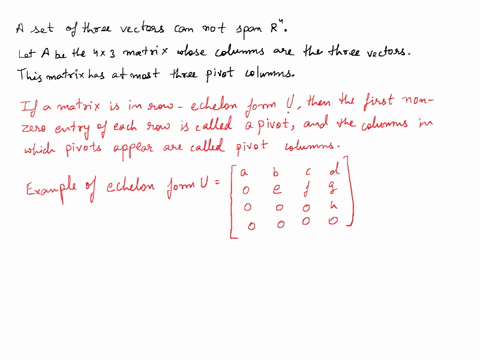 A set of three vectors can not span R⁴.
Let A be the 4x3 matrix whose columns are the three vectors.
This matrix has at most three pivot columns.
If a matrix is in row-echelon form U, then the first non-
zero entry of each row is called a pivot, and the columns in
which pivots appear are called pivot columns.
Example of echelon form U = [a b c d
0 e f g
0 0 0 h
0 0 0 0]